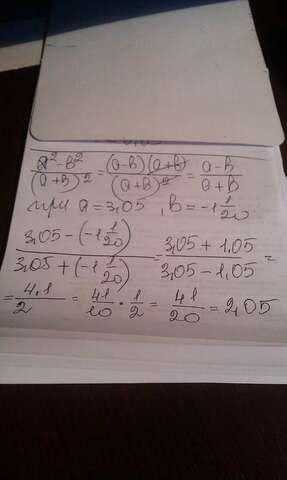 (a² - b²)/(a + b)² = ((a - b)(a + b))/(a + b)² = (a - b)/(a + b)
при a = 3,05 , b = -1 1/20
(3,05 - (-1 1/20))/(3,05 + (-1 1/20)) = (3,05 + 1,05)/(3,05 - 1,05) =
= 4,1/2 = 41/10 · 1/2 = 41/20 = 2,05